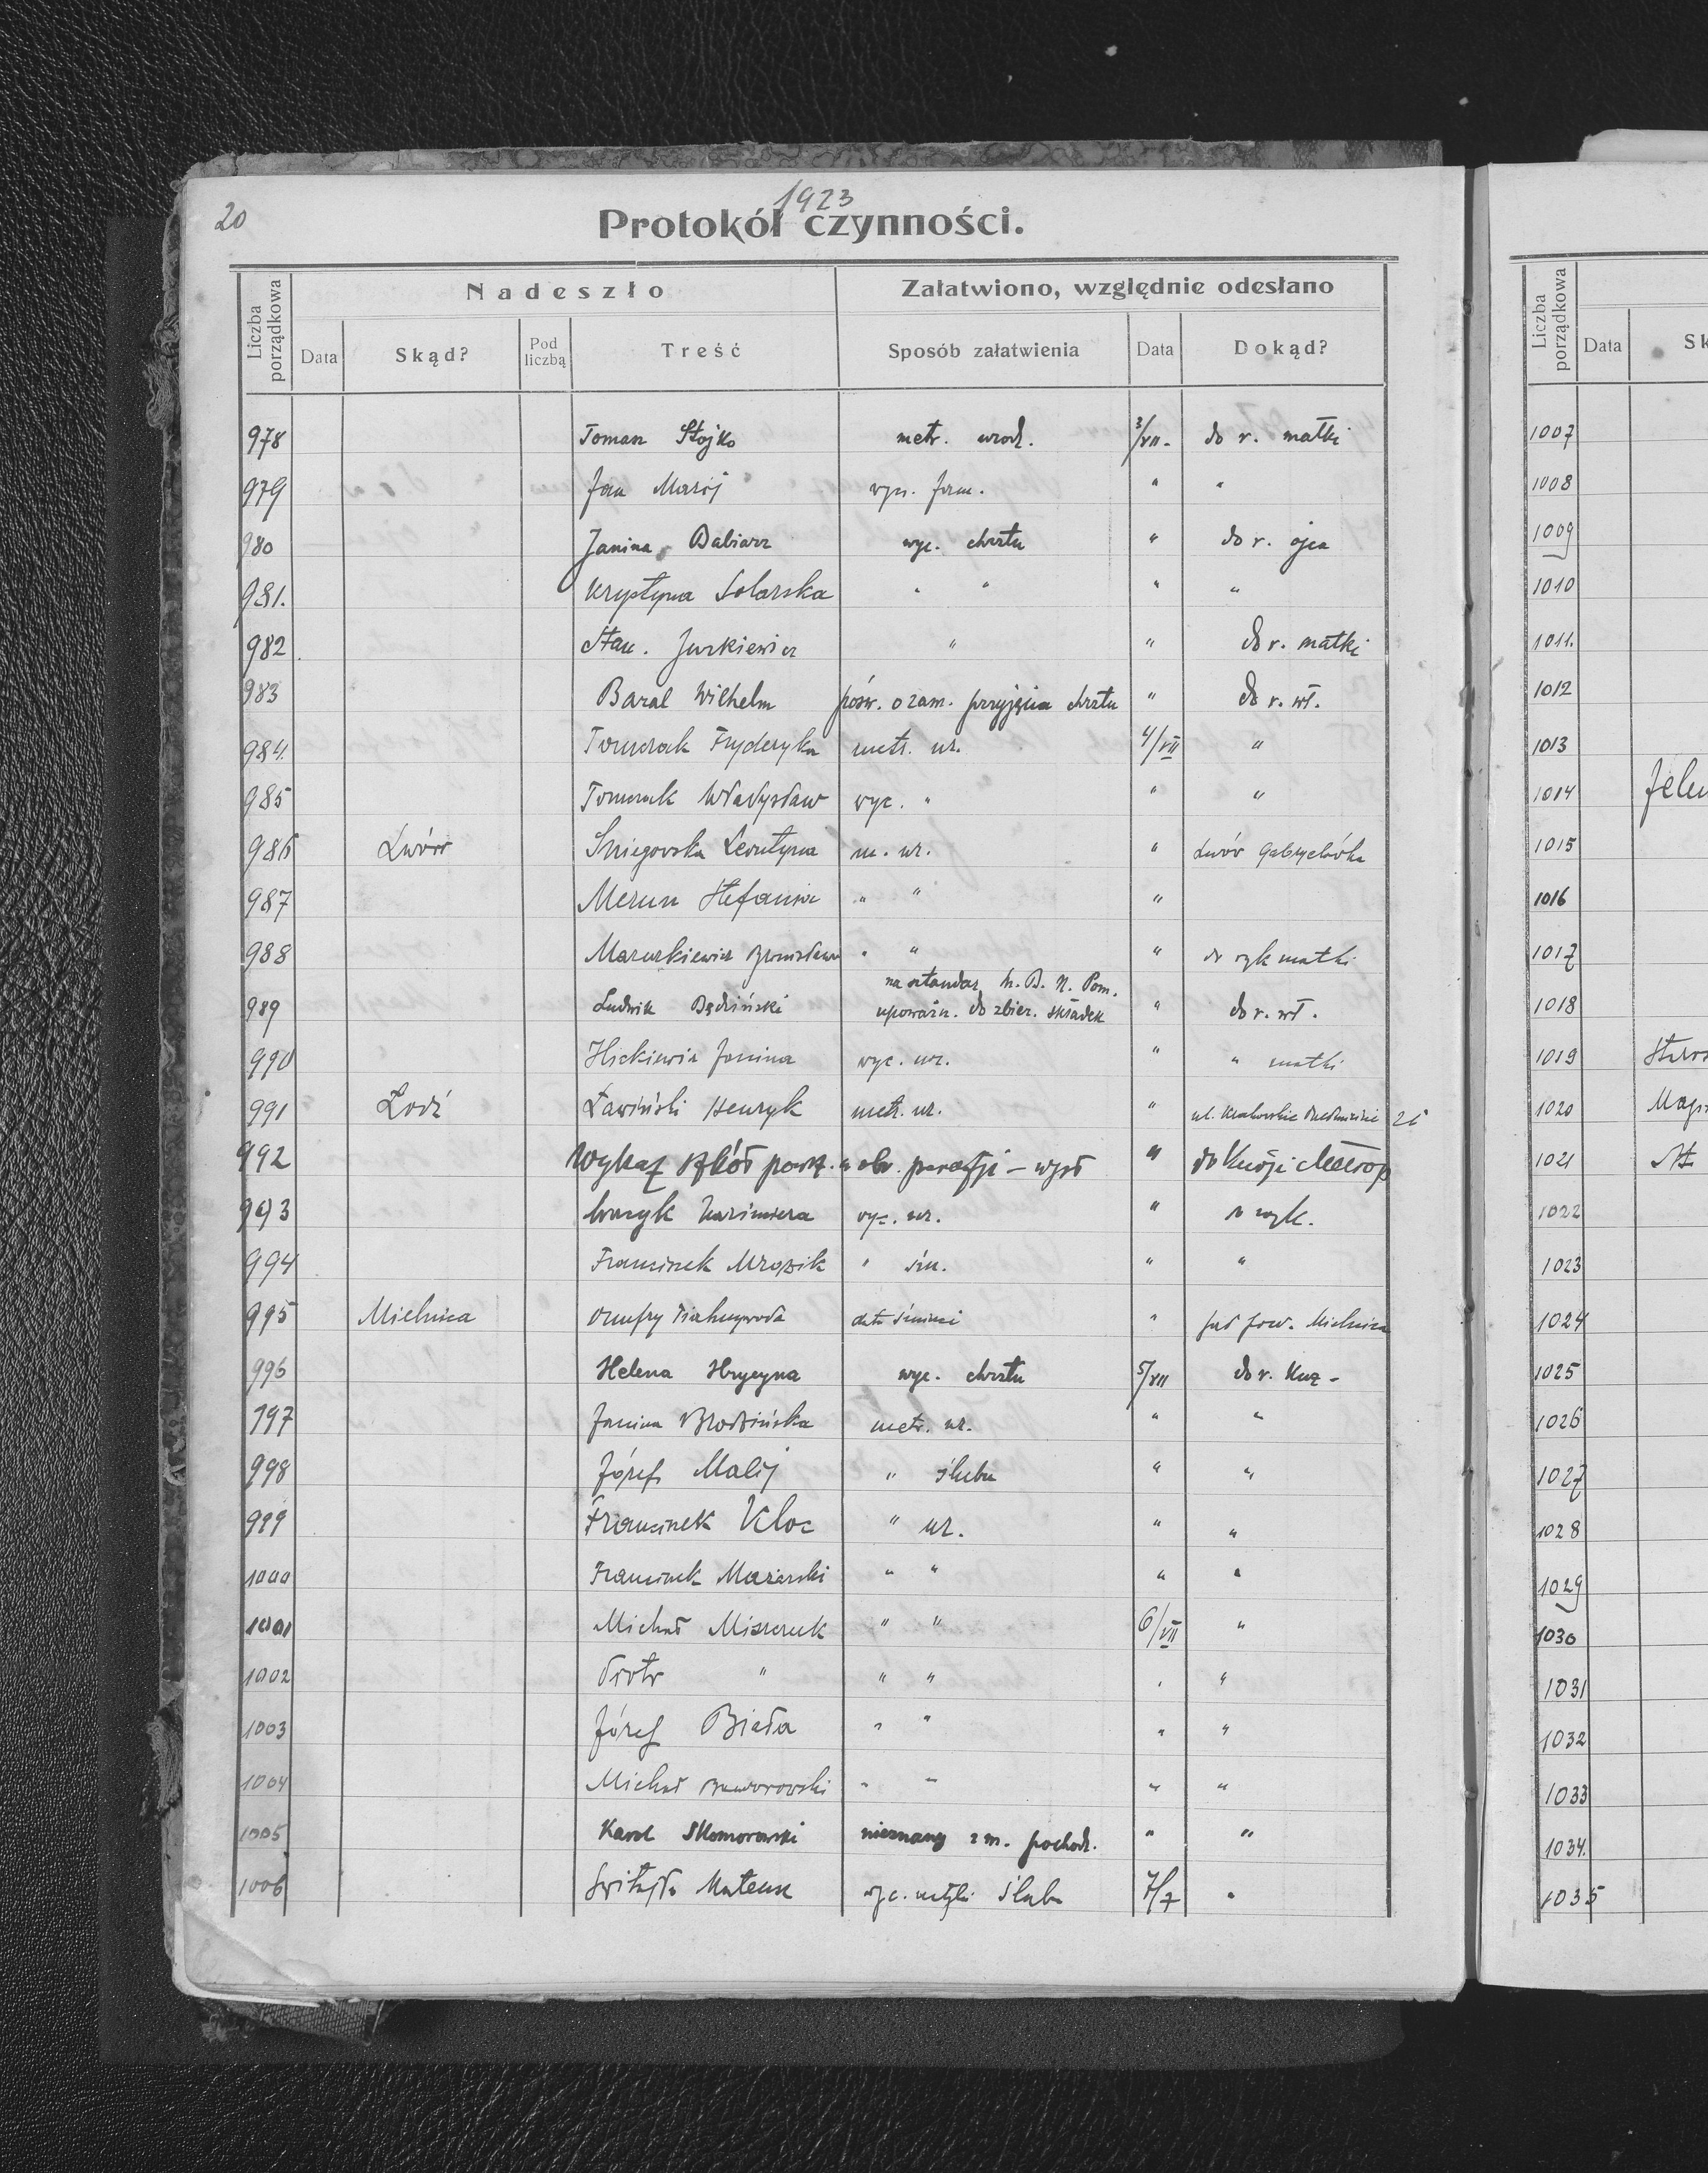 20
1923
Protokół czynności.
Liczba porządkowa
Nadeszło
Załatwiono, względnie odesłano
Data
Skąd?
Pod liczbą
Treść
Sposób załatwienia
Data
Dokąd?
978 Tomasz Stojko metr. urodz. 3/VII - do r. matki
979 Jan Maraj wyc. " "
980 Janina Babiarz wyc. chrztu " do r. ojca
981. Krystyna Solarska " " " "
982 Stan. Jurkiewicz " " do r. matki
983 Baral Wilhelm pośw. o zam. przyjęcia chrztu " do r. wł.
984. Tomczak Fryderyka metr. ur. 4/VII "
985 Tomczak Władysław wyc. " " "
986 Lwów Sniegowska Leontyna m. ur. " Lwów Gabryelówka
987 Merun Stefania " " "
988 Mazurkiewicz Bronisława " " " do rąk matki
na sztandar M. B. N. Pom.
989 Ludwik Będziński upoważn. do zbier. składek " do r. wł.
990 Janina wyc. ur. " " matki
991 Łodź Ławiński Henryk metr. ur. " ul. Krakowskie
992 Wykaz szkół parafji - " do Kurji Metrop
993 Kazimiera wyc. ur. " do rąk.
994 Franciszek Mrozik " śm. " "
995 Mielnica Onufry data śmierci " Sąd pow. Mielnica
996 Helena Hrycyna wyc. chrztu 5/VII do r.
997 Janina Brodzińska metr. ur. " "
998 Józef Malij " ślubu " "
999 Franciszek Kloc " ur. " "
1000 Franciszek Mazerski " " " "
1001 Michał Miszczuk " " 6/VII "
1002 Piotr " " " " "
1003 Józef Biała " " " "
1004 Michał Baworowski " " " "
1005 Karol Skomorowski nieznany z m. pochodz. " "
1006 Mateusz wyc. metryki ślubu 7/7 "
Liczba porządkowa
Data
Sk
1007
1008
1009
1010
1011.
1012
1013
1014
1015
1016
1017
1018
1019
1020
1021
1022
1023
1024
1025
1026
1027
1028
1029
1030
1031
1032
1033
1034.
1035